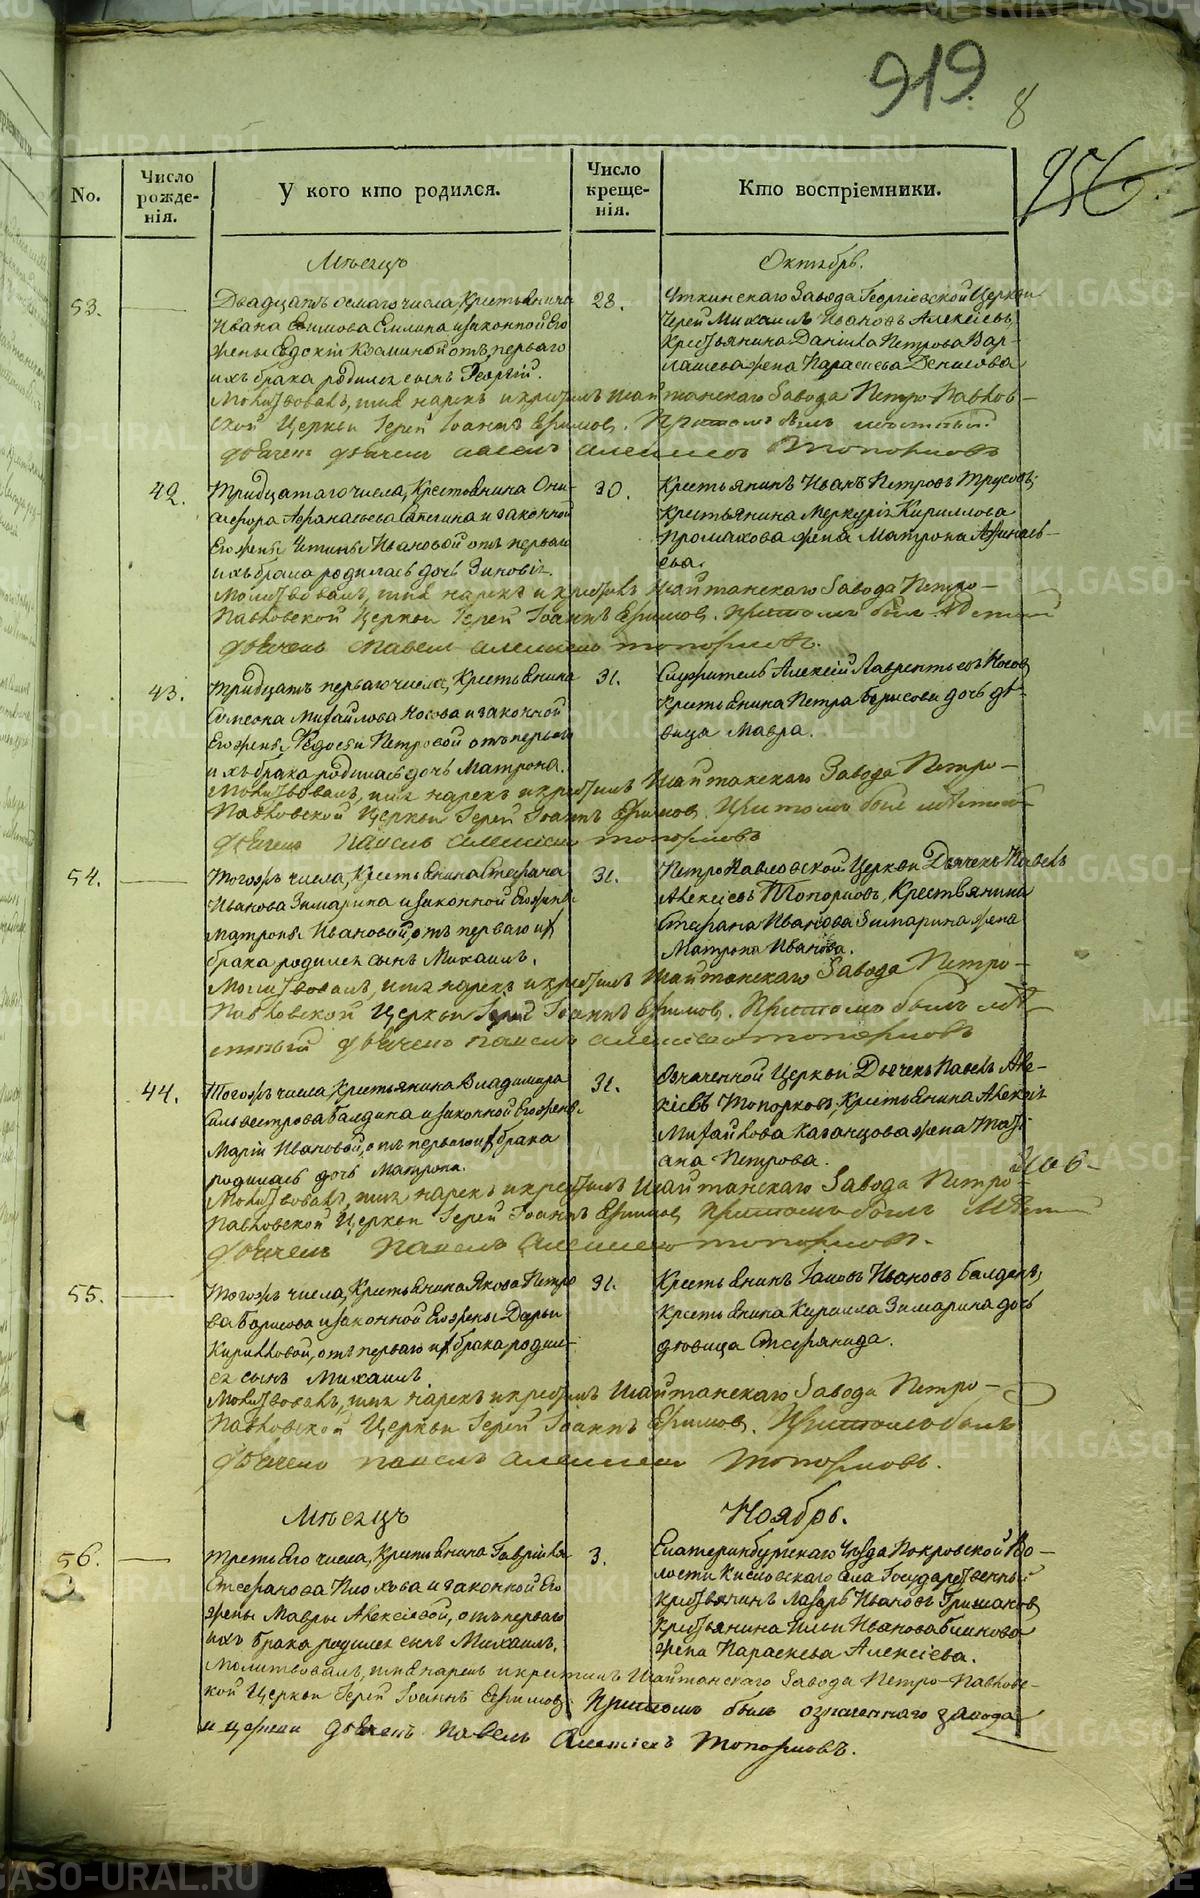 919
8
256
No.
Число рожденія.
У кого кто родился.
Число крещенія.
Кто воспріемники.
Мѣсяцъ
Октябрь.
53.
Двадцать осмаго числа, Крестьянина
Ивана Ефимова и законной Его
жены Козминой отъ перваго
ихъ брака родился сынъ Георгій.
28.
Уткинскаго Завода Георгіевской Церкви
Іерей Михаилъ Ивановъ Алексіевъ,
Крестьянина Даніила Петрова Вар-
лашева жена Параскева Денисова
Молитвовалъ, имя нарекъ и крестилъ Шайтанскаго Завода Петро-Павлов-
ской Церкви Іерей Іоаннъ Ефимовъ. Притомъ былъ мѣстный
дьячекъ Павелъ Алексіевъ Топорковъ
42.
Тридцатаго числа, Крестьянина Они-
сифора Афанасьева и законной
Его жены Устиньи Ивановой отъ перваго
ихъ брака родилась дочь Зиновія.
30.
Крестьянинъ Иванъ Петровъ Трусовъ;
Крестьянина Меркурія Кириллова
Промахова жена Матрона Афанась-
ева.
Молитвовалъ, имя нарекъ и крестилъ Шайтанскаго Завода Петро-
Павловской Церкви Іерей Іоаннъ Ефимовъ. Притомъ былъ
дьячекъ Павелъ Алексіевъ Топорковъ.
43.
Тридцать перваго числа, Крестьянина
Симеона Михайлова Носова и законной
Его жены Федосьи Петровой отъ перваго
ихъ брака родилась дочь Матрона.
31.
Служитель Алексій Лаврентьевъ Носовъ
Крестьянина Петра Борисова дочь дѣ-
вица Мавра.
Молитвовалъ, имя нарекъ и крестилъ Шайтанскаго Завода Петро-
Павловской Церкви Іерей Іоаннъ Ефимовъ. Притомъ былъ мѣстной
дьячекъ Павелъ Алексіевъ Топорковъ
54.
Тогожъ числа, Крестьянина Стефана
Иванова Зимарина и законной Его жены
Матроны Ивановой, отъ перваго ихъ
брака родился сынъ Михаилъ.
31.
Петропавловской Церкви Дьячекъ Павелъ
Алексіевъ Топорковъ, Крестьянина
Стефана Иванова Зимарина жена
Матрона Иванова.
Молитвовалъ, имя нарекъ и крестилъ Шайтанскаго Завода Петро-
Павловской Церкви Іерей Іоаннъ Ефимовъ. Притомъ былъ мѣ-
стный дьячекъ Павелъ Алексіевъ Топорковъ
44.
Тогожъ числа, Крестьянина Владимира
Сильвестрова Балдина и законной Его жены
Маріи Ивановой, отъ перваго ихъ брака
родилась дочь Матрона.
31.
Означенной Церкви Дьячекъ Павелъ Але-
ксіевъ Топорковъ; Крестьянина Алексія
Михайлова Казанцова жена Тать
ана Петрова.
Молитвовалъ, имя нарекъ и крестилъ Шайтанскаго Завода Петро-
Павловской Церкви Іерей Іоаннъ Ефимовъ Притомъ былъ
дьячекъ Павелъ Алексіевъ Топорковъ.
55.
Тогожъ числа, Крестьянина Якова Петро
ва Борисова и законной Его жены Дарьи
Кирилловой, отъ перваго ихъ брака родил-
ся сынъ Михаилъ.
31.
Крестьянинъ Ивановъ Балдинъ,
Крестьянина Кирилла Зимарина дочь
дѣвица Стефанида.
Молитвовалъ, имя нарекъ и крестилъ Шайтанскаго Завода Петро-
Павловской Церкви Іерей Іоаннъ Ефимовъ. Притомъ былъ
дьячекъ Павелъ Алексіевъ Топорковъ.
Мѣсяцъ
Ноябрь.
56.
Третьяго числа, Крестьянина Гавріила
Стефанова и законной Его
жены Мавры Алексіевой, отъ перваго
ихъ брака родился сынъ Михаилъ.
3.
Екатеринбургскаго Уѣзда Покровской Во-
лости Кисловскаго села Государственный
Крестьянинъ Лазарь Ивановъ
Крестьянина Ильи Иванова Блинова
жена Параскева Алексіева.
Молитвовалъ, имя нарекъ и крестилъ Шайтанскаго Завода Петро-Павловс-
кой Церкви Іерей Іоаннъ Ефимовъ. Притомъ былъ означеннаго завода
и церкви дьячекъ Павелъ Алексіевъ Топорковъ.
METRIKI.GASO-URAL.RU